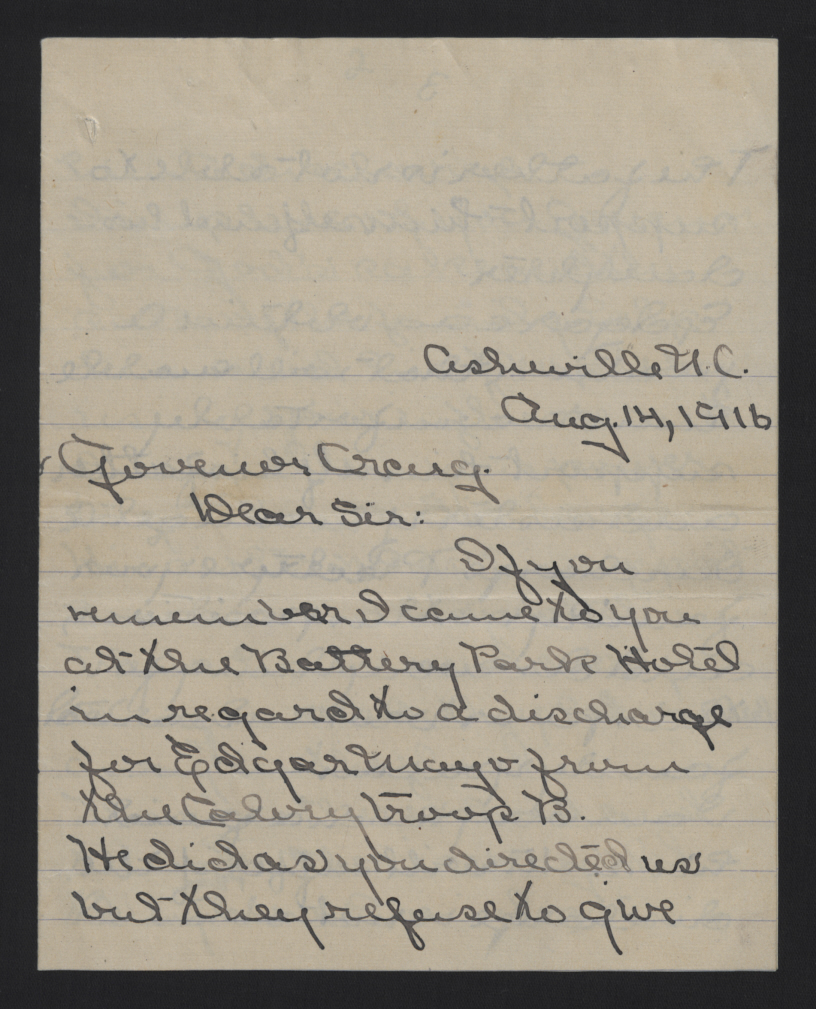 Asheville N.C.
Aug. 14, 1916
Govenor Craig.
Dear Sir:
If you
remember I came to you
at the Battery Park Hotel
in regard to a discharge
for Edgar Mayo from
the Calvry troop B.
He did as you directed us
but they refuse to give